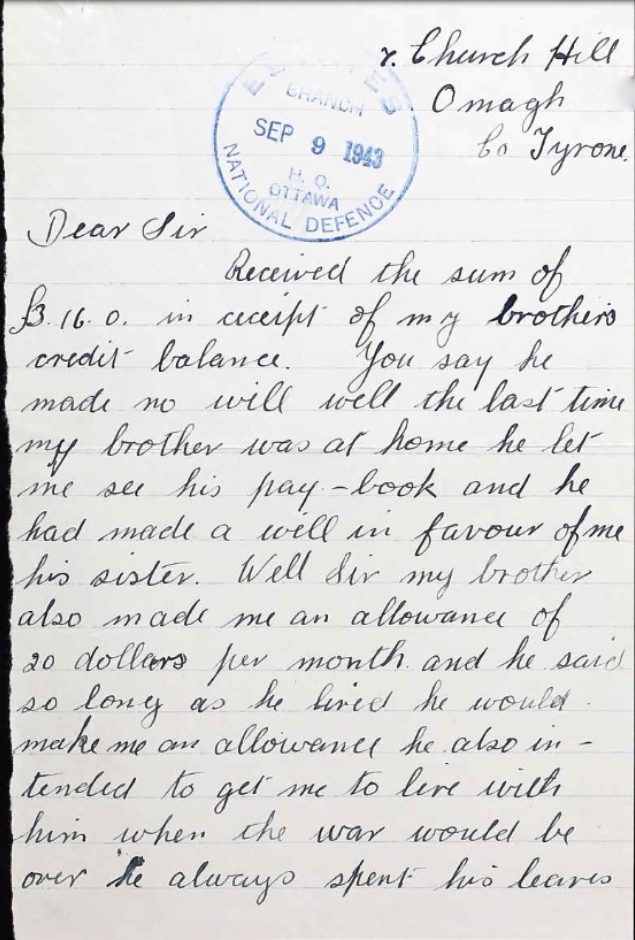 r. Church Hill
Omagh
Co Tyrone.
ESTATES
BRANCH
SEP 9 1943
H. Q.
OTTAWA
NATIONAL DEFENCE
Dear Sir
Received the sum of
£3. 16. 0. in receipt of my brothers
credit balance. You say he
made no will well the last time
my brother was at home he let
me see his pay-book and he
had made a will in favour of me
his sister. Well Sir my brother
also made me an allowance of
20 dollars per month and he said
so long as he lived he would
make me an allowance he also in-
tended to get me to live with
him when the war would be
over he always spent his leaves